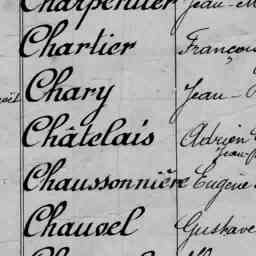 Charpentier Jean-M
Chartier Françou
Chary Jean-
Châtelais Adrien
Jean-
Chaussonnière Eugène
Chauvel Gustave